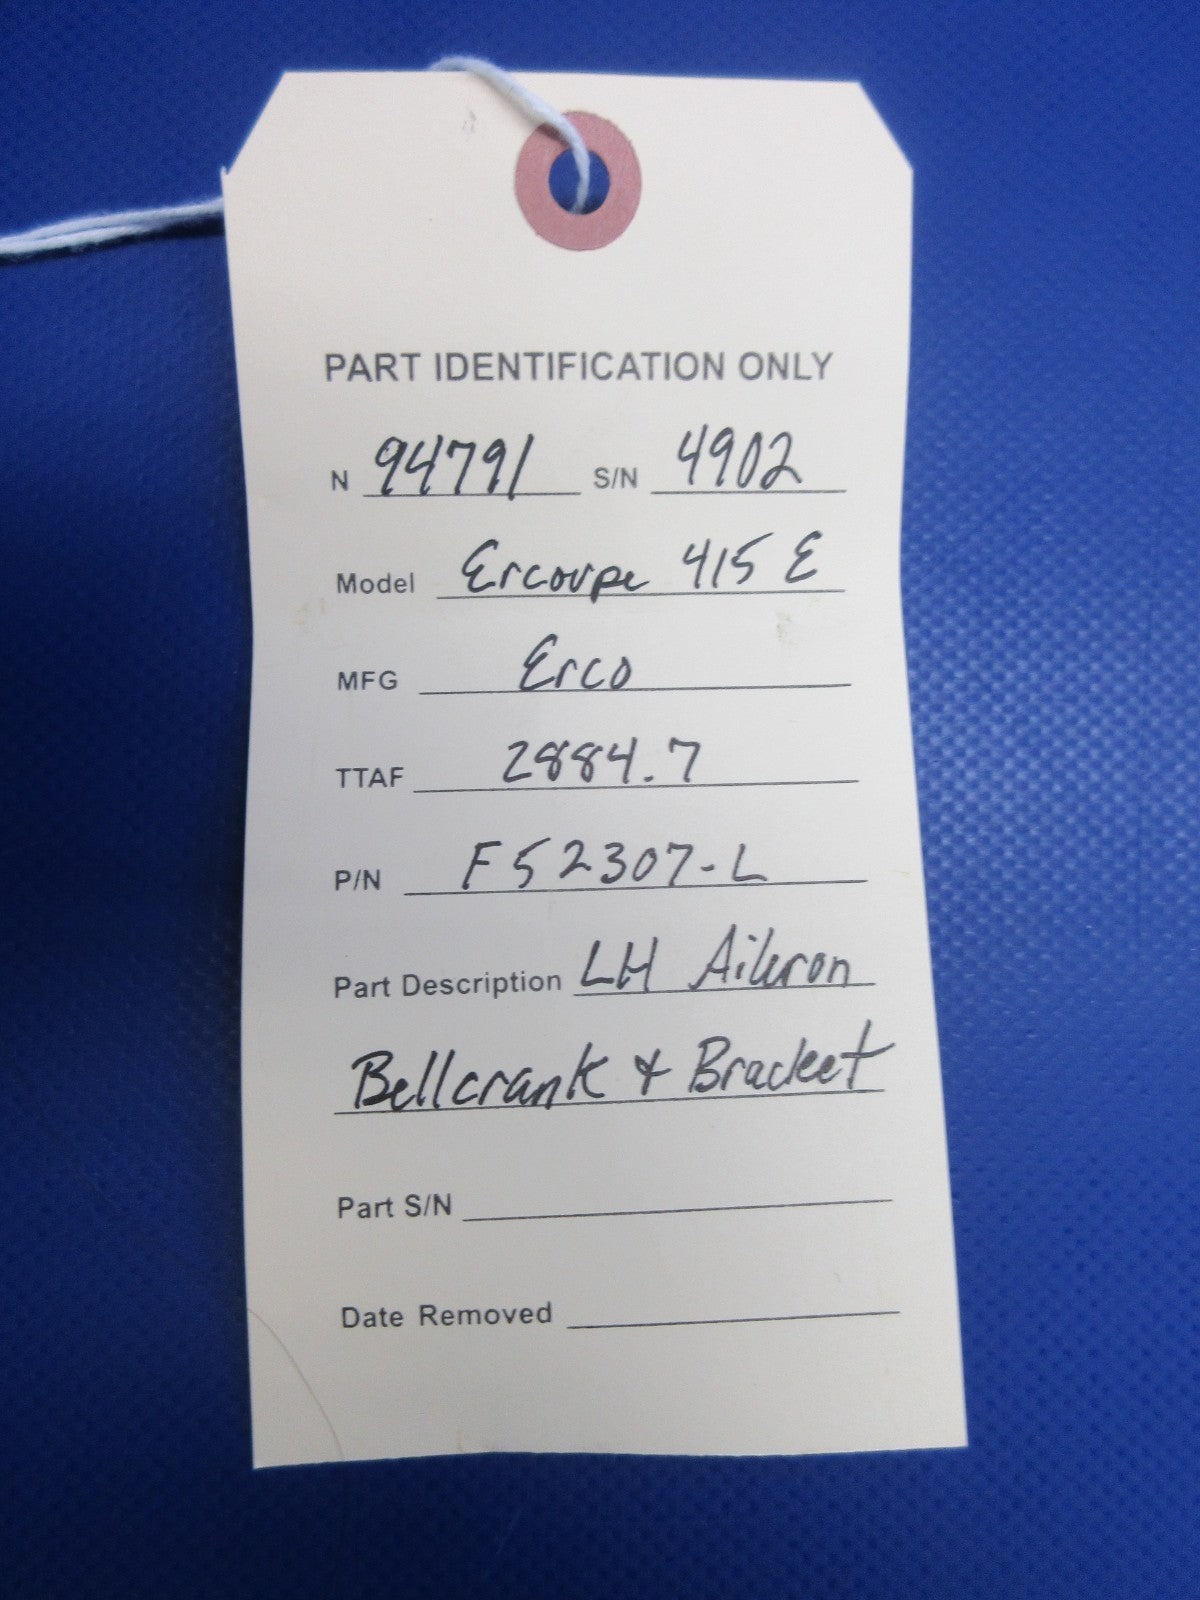 PART IDENTIFICATION ONLY
N 94791 S/N 4902
Model Ercoupe 415 E
MFG Erco
TTAF 2884.7
P/N F52307-L
Part Description LH Aileron
Bellcrank & Bracket
Part S/N
Date Removed